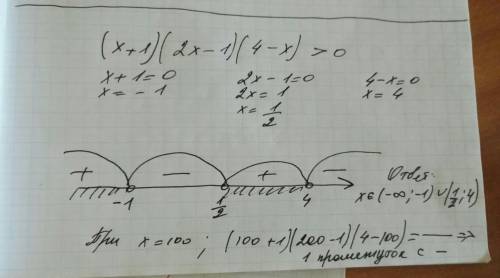 (x+1)(2x-1)(4-x)>0
x+1=0 2x-1=0 4-x=0
x=-1 2x=1 x=4
x=1/2
+ - + -
-1 1/2 4
Ответ:
x∈(-∞;-1)∪(1/2;4)
При x=100; (100+1)(200-1)(4-100)=— ⇒
1 промежуток с —